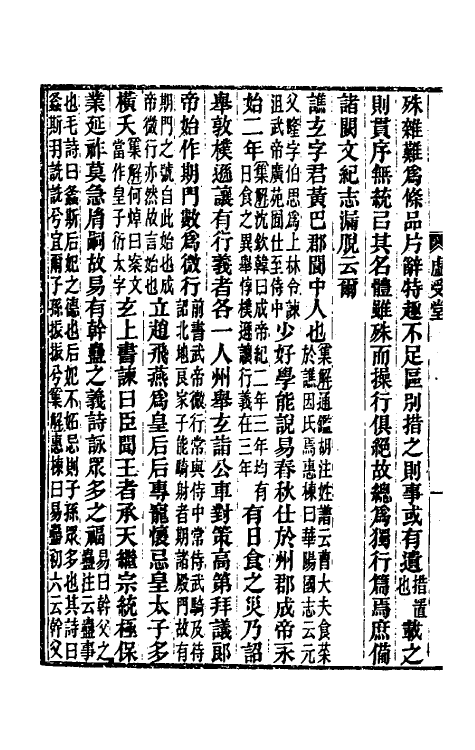 虛受堂
一
殊雜難為條品片辭特趣不足區別措之則事或有遺措置也載之
則貫序無統已其名體雖殊而操行俱絕故總為獨行篇焉庶備
諸闕文紀志漏脫云爾
譙玄字君黃巴郡閬中人也集解通鑑胡注姓譜云曹大夫食菜於譙因氏焉惠棟曰華陽國志云元
父隆字伯思為上林令諫沮武帝廣苑囿仕至侍中少好學能說易春秋仕於州郡成帝永
始二年集解沈欽韓曰成帝紀二年三年均有日食之異舉惇樸遜讓行義在三年有日食之災乃詔
舉敦樸遜讓有行義者各一人州舉玄詣公車對策高第拜議郎
帝始作期門數為微行前書武帝微行常與侍中常侍武騎及待詔北地良家子能騎射者期諸殿門故有
期門之號自此始也成帝微行亦然故言始也立趙飛燕為皇后后專寵懷忌皇太子多
橫夭集解何焯曰案文當作皇子衍太字玄上書諫曰臣聞王者承天繼宗統極保
業延祚莫急胤嗣故易有幹蠱之義詩詠眾多之福易曰幹父之蠱注云蠱事
也毛詩曰螽斯后妃之德也后妃不妒忌則子孫眾多也其詩曰
螽斯羽詵詵兮宜爾子孫振振兮集解惠棟曰易蠱初六云幹父